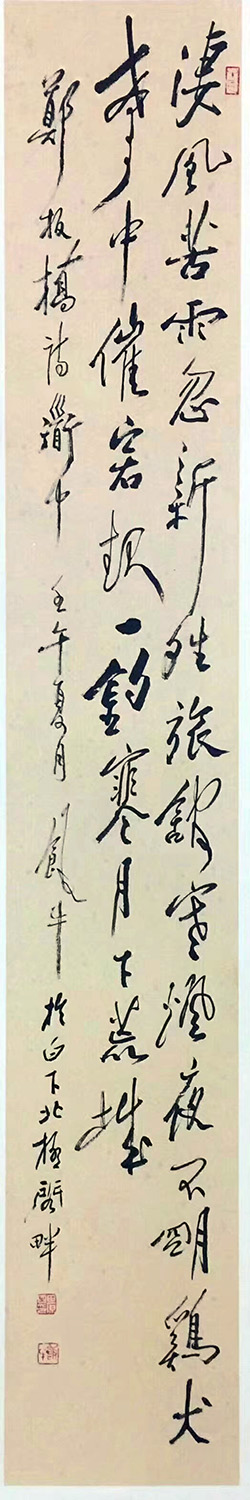 凄風苦雨忽新晴旅館寒燈夜不明鷄犬
聲中催客起一鈎寒月下荒城
鄭板橋詩道中 壬午夏月 於白下北極閣畔